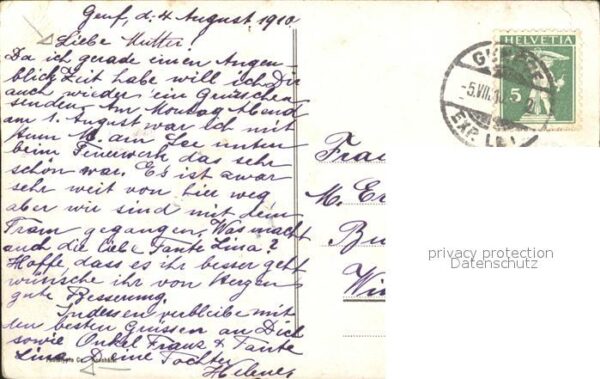 Genf, d. 4 August 1910
Liebe Mutter
Da ich gerade einen Augen-
blick Zeit habe will ich Dir
auch wieder ein Grüsschen
senden. Am Montag Abend
am 1. August war ich mit
M. am See unten
beim Feuerwerk, das sehr
schön war. Es ist zwar
sehr weit von hier weg
aber wir sind mit dem
Tram gegangen. Was macht
auch die liebe Tante Lina?
Hoffe, dass es ihr besser geht
wünsche ihr von Herzen
gute Besserung.
Indessen verbleibe mit
den besten Grüssen an Dich
sowie Onkel Franz & Tante
Lina Deine Tochter
Helene
HELVETIA
5
-5.VIII.10
EXP. LE
Frau
M. Er
Bu
Win
privacy protection
Datenschutz